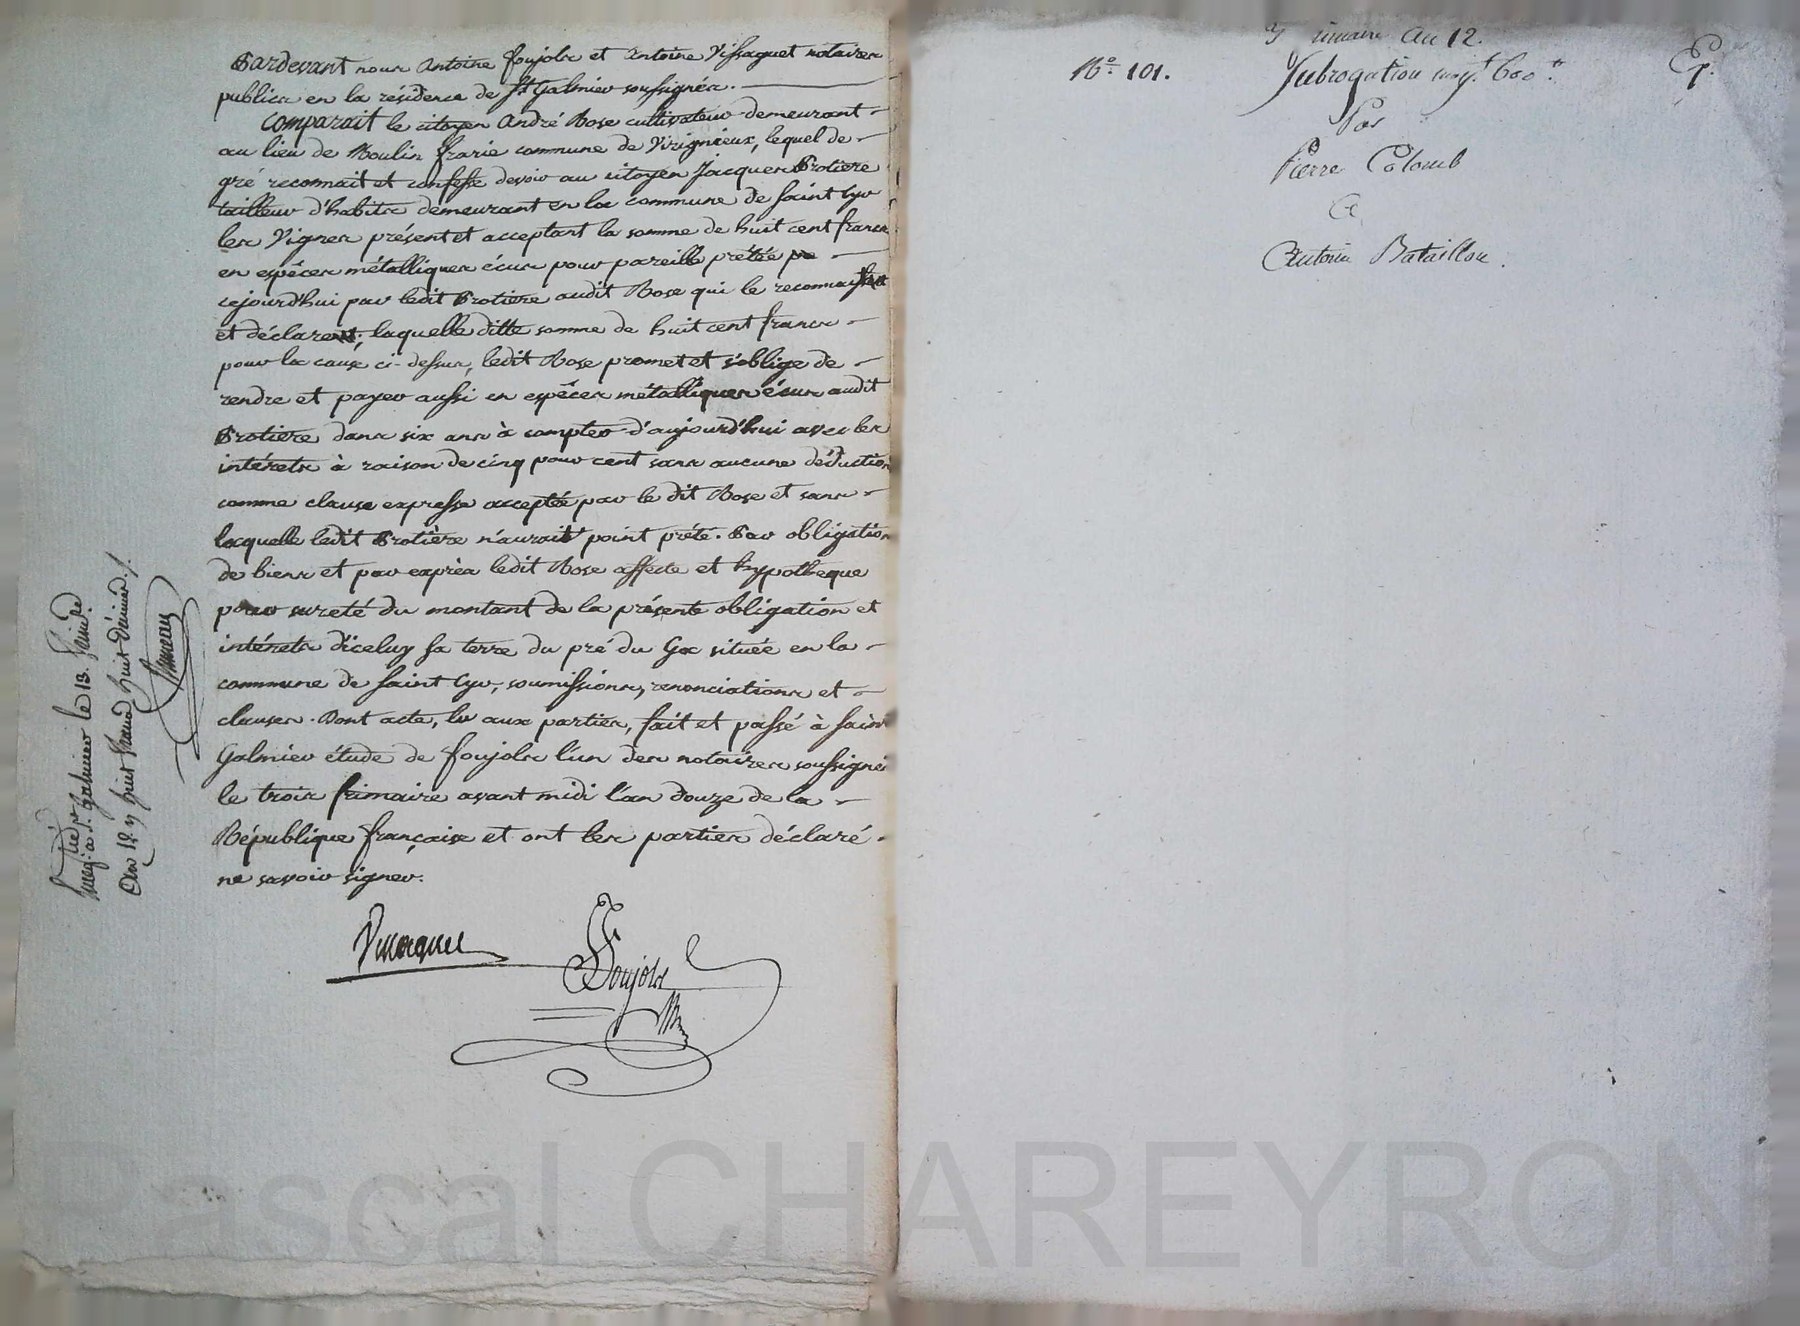 Pardevant nous Antoine foujols et Antoine Vissaguet notaires
publics en la résidence de St Galmier soussignés.
Comparait le citoyen André Rose cultivateur demeurant
au lieu de Moulin frarie commune de Virignieux, lequel de
gré reconnait et confesse devoir au citoyen Jacques Protiere
tailleur d'habits demeurant en la commune de saint Cyr
les Vignes présent et acceptant la somme de huit cent francs
en espêces métalliques écus pour pareille prétée
cejourd'hui par ledit Protiere audit Rose qui le reconnait
et déclare, laquelle ditte somme de huit cent francs
pour la cause ci-dessus, ledit Rose promet et s'oblige de
rendre et payer aussi en espêces métalliques écus audit
Protiere dans six ans à compter d'aujourd'hui avec les
intérets à raison de cinq pour cent sans aucune déduction
comme clause expresse acceptée par le dit Rose et sans
laquelle ledit Protière n'aurait point prété. Par obligation
de biens et par exprès ledit Rose affecte et hypotheque
pour sureté du montant de la présente obligation et
intérets d'iceluy sa terre du pré du Ga située en la
commune de saint Cyr, soumissions, renonciations et
clauses. Dont acte, lu aux parties, fait et passé à saint
Galmier étude de foujols l'un des notaires soussignés
le trois frimaire avant midi l'an douze de la
République française et ont les parties déclaré
ne savoir signer.
Vissaguet
Foujols
Enreg. à St. Galmier le 13. frim.re
an 12. R huit francs huit décimes
3 frimaire An 12.
N.° 101.
Subrogation 600 tt
Par
Pierre Colomb
A
Antoine Bataillon.